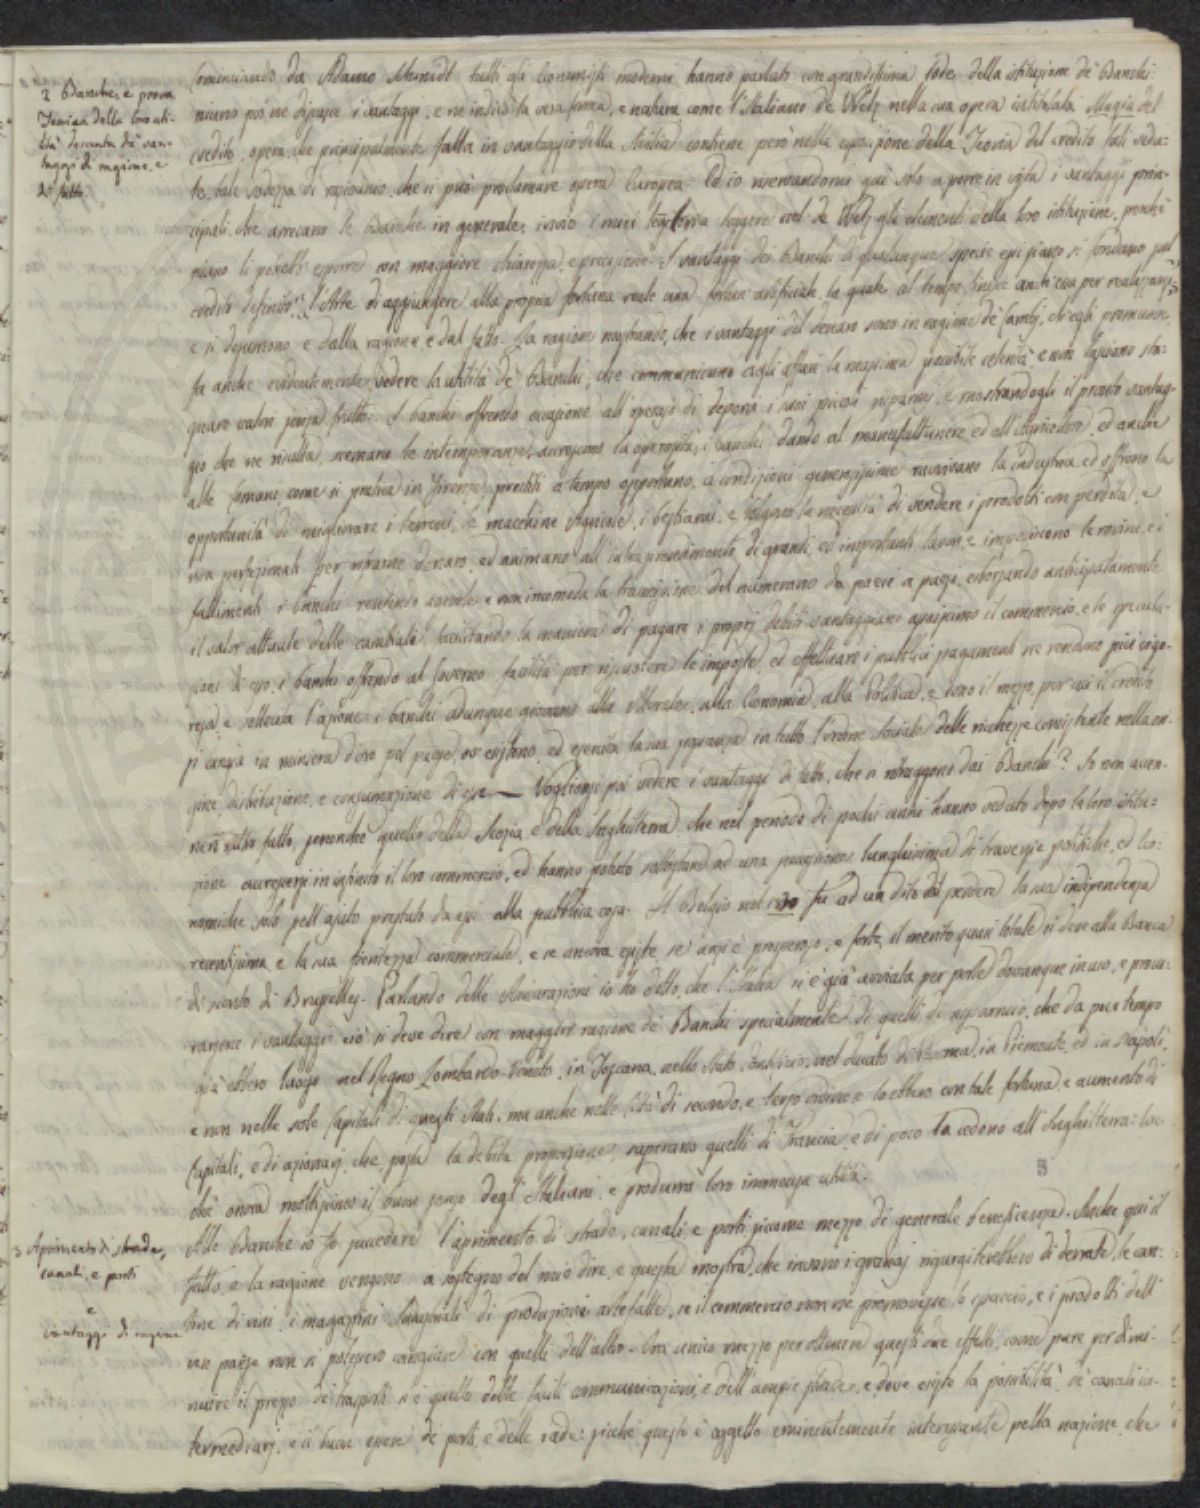 2 Banche, e prova
Teorica della loro uti-
lità desunta da' van-
taggi di ragione, e
di fatto.
Cominciando da Adamo Schmidt tutti gli Economisti moderni hanno parlato con grandissima lode della istituzione de' Banchi:
niuno poi ne espose i vantaggi, e ne indicò la vera forma, e natura come l'Italiano de Welz nella sua opera intitolata Magia del
credito, opera, che principalmente fatta in vantaggio della Sicilia contiene però nella esposizione della Teoria del credito tali vedu-
te, tale sodezza di raziocinio, che si può proclamare opera Europea. Ed io riserbandomi qui solo a porre in vista i vantaggi prin-
cipali, che arrecano le Banche in generale, invio i miei leggitori a leggere nel de Welz gli elementi della loro istituzione, poichè
niuno li potrebbe esporre con maggiore chiarezza, e precisione. I vantaggi dei Banchi di qualunque specie essi siano si fondano sul
credito definito: L'Arte di aggiungere alla propria fortuna reale una fortuna artificiale, la quale al tempo stesso anticipa per realizzarsi,
e si desumono e dalla ragione e dal fatto. La ragione mostrando, che i vantaggi del denaro sono in ragione de' cambj, ch'egli promuove,
fa anche evidentemente vedere la utilità de' Banchi, che communicano agli affari la massima possibile celerità e non lasciano sta-
gnare valori senza frutto. I banchi offrendo occasione all'operajo di deporvi i suoi piccoli risparmj, e mostrandogli il pronto vantag-
gio che ne risulta, scemano le intemperanze, accrescono la operosità; i banchi dando al manufatturiere ed all'Agricoltore, ed anche
alle Comuni, come si pratica in Firenze, prestiti a tempo opportuno, a condizioni generosissime ravvivano la industria ed offrono la
opportunità di migliorare i terreni, le macchine agricole, i bestiami, e tolgono la necessità di vendere i prodotti con perdita, e
non perfezionati per ritrarne denaro, ed animano all'intraprendimento di grandi, ed importanti lavori, e impediscono le rovine, e i
fallimenti; i banchi rendendo agevole e non incomoda la trasmissione del numerario da paese a paese, esborsando anticipatamente
il valor attuale delle cambiali, facilitando la maniera di pagare i proprj debiti vantaggiano assaissimo il commercio, e le specula-
zioni di esso; i banchi offrendo al Governo facilità per riscuotere le imposte, ed effettuare i pubblici pagamenti ne rendono più vigo-
rosa, e sollecita l'azione: i banchi adunque giovano alla Morale, alla Economia, alla Politica, e sono il mezzo, per cui il credito
si cangia in miniera d'oro pel paese, ov'esistono, ed esercita la sua possanza in tutto l'ordine sociale delle ricchezze consistente nella ori-
gine, distribuzione, e consumazione di esse. — Vogliansi poi vedere i vantaggi di fatto, che si ritraggono dai Banchi? Io non accen-
nerò altro fatto, senonchè quello della Scozia, e della Inghilterra, che nel periodo di pochi anni hanno veduto dopo la loro istitu-
zione accrescersi in infinito il loro commercio, ed hanno potuto sottostare ad una lunghissima di traversie politiche, ed Eco-
nomiche solo pell'ajuto prestato da essi alla pubblica cosa. Il Belgio nel 1830 fu ad un dito dal perdere la sua indipendenza
recentissima e la sua floridezza commerciale, e se ancora esiste, se anzi è prosperoso, e forte, il merito quasi totale si deve alla Banca
di sconto di Bruxelles. Parlando delle Assicurazioni io ho detto, che l'Italia si è già avviata per porle dovunque in uso, e procu-
rarsene i vantaggi: ciò si deve dire con maggior ragione dei Banchi specialmente di quelli di risparmio, che da poco tempo
già ebbero luogo nel Regno Lombardo-Veneto, in Toscana, nello Stato Pontificio, nel ducato di Parma, in Piemonte, ed in Napoli,
e non nelle sole Capitali di questi Stati, ma anche nelle Città di secondo, e terzo ordine, e lo ebbero con tale fortuna, e aumento di
Capitali, e di azionarj, che, posta la debita proporzione, superano quelli di Francia, e di poco la cedono all'Inghilterra: loc-
chè onora moltissimo il buon senso degl'Italiani, e produrrà loro immensa utilità.
3 Aprimento di strade,
canali, e porti
e
vantaggi di ragione
Alle Banche io fo succedere l'aprimento di strade, canali, e porti, siccome mezzo di generale beneficenza. Anche qui il
fatto, e la ragione vengono a sostegno del mio dire, e questa mostra, che invano i granaj rigurgiterebbero di derrate, le can-
tine di vini, i magazzini di produzioni artefatte, se il commercio non ne promovesse lo spaccio, e i prodotti dell'
un paese non si potessero cangiare con quelli dell'altro. Ora unico mezzo per ottenere questi due effetti, come pure per dimi-
nuire il prezzo de' trasporti si è quello delle facili communicazioni, e dell'ampie strade, e, dove esista la possibilità, de' canali in-
termediarj, e il buon essere de' porti, e delle rade: sicchè questo è oggetto eminentemente interessante pella nazione, che